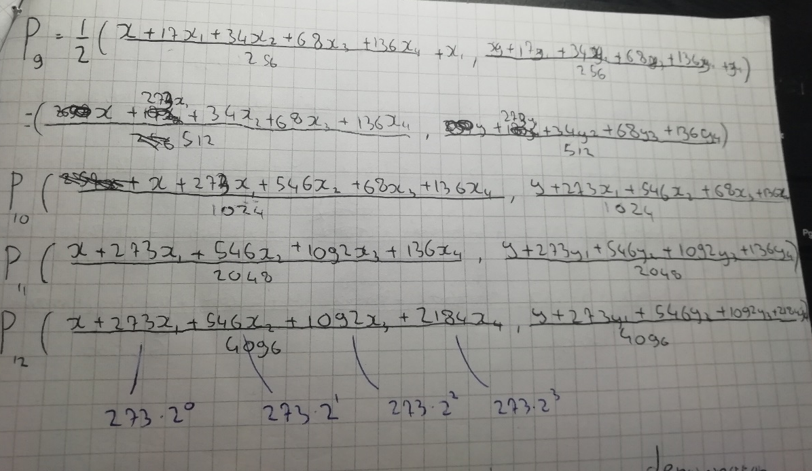 P₉ = 1/2 ( (x + 17x₁ + 34x₂ + 68x₃ + 136x₄)/256 + x₁ , (y + 17y₁ + 34y₂ + 68y₃ + 136y₄)/256 + y₁ )
= ( (x + 273x₁ + 34x₂ + 68x₃ + 136x₄)/512 , (y + 273y₁ + 34y₂ + 68y₃ + 136y₄)/512 )
P₁₀ ( (x + 273x₁ + 546x₂ + 68x₃ + 136x₄)/1024 , (y + 273x₁ + 546x₂ + 68x₃ + 136x)/1024
P₁₁ ( (x + 273x₁ + 546x₂ + 1092x₃ + 136x₄)/2048 , (y + 273y₁ + 546y₂ + 1092y₃ + 136y₄)/2048 )
P₁₂ ( (x + 273x₁ + 546x₂ + 1092x₃ + 2184x₄)/4096 , (y + 273y₁ + 546y₂ + 1092y₃ + 2184y₄)/4096
273·2⁰ 273·2¹ 273·2² 273·2³